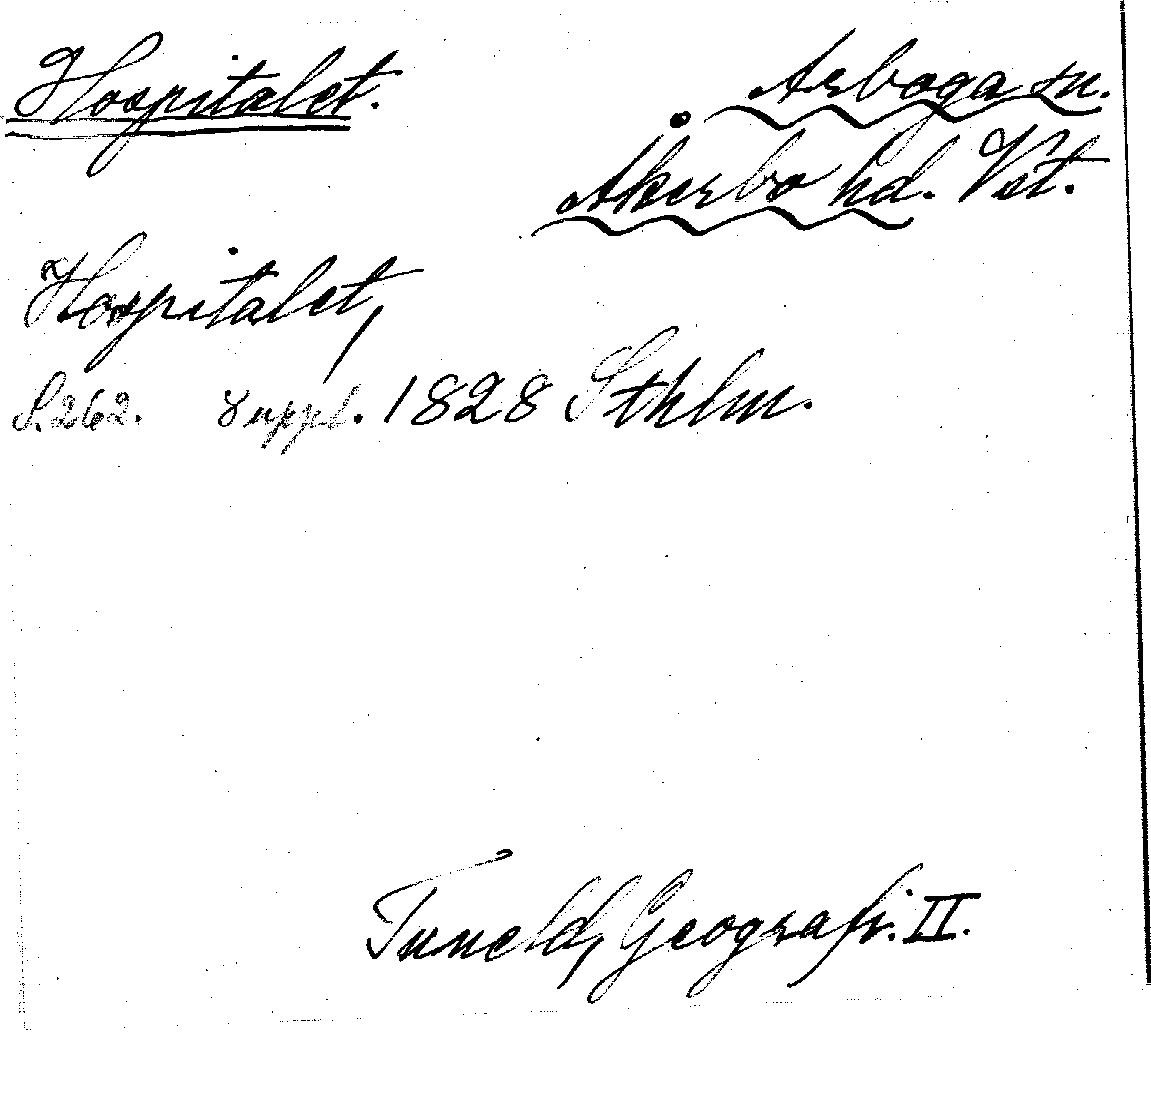 Hospitalet.
Arboga sn.
Åkerbo hd. Vst.
Hospitalet,
S. 262. 8 uppl. 1828 Sthlm.
Tuneld, Geografi. II.